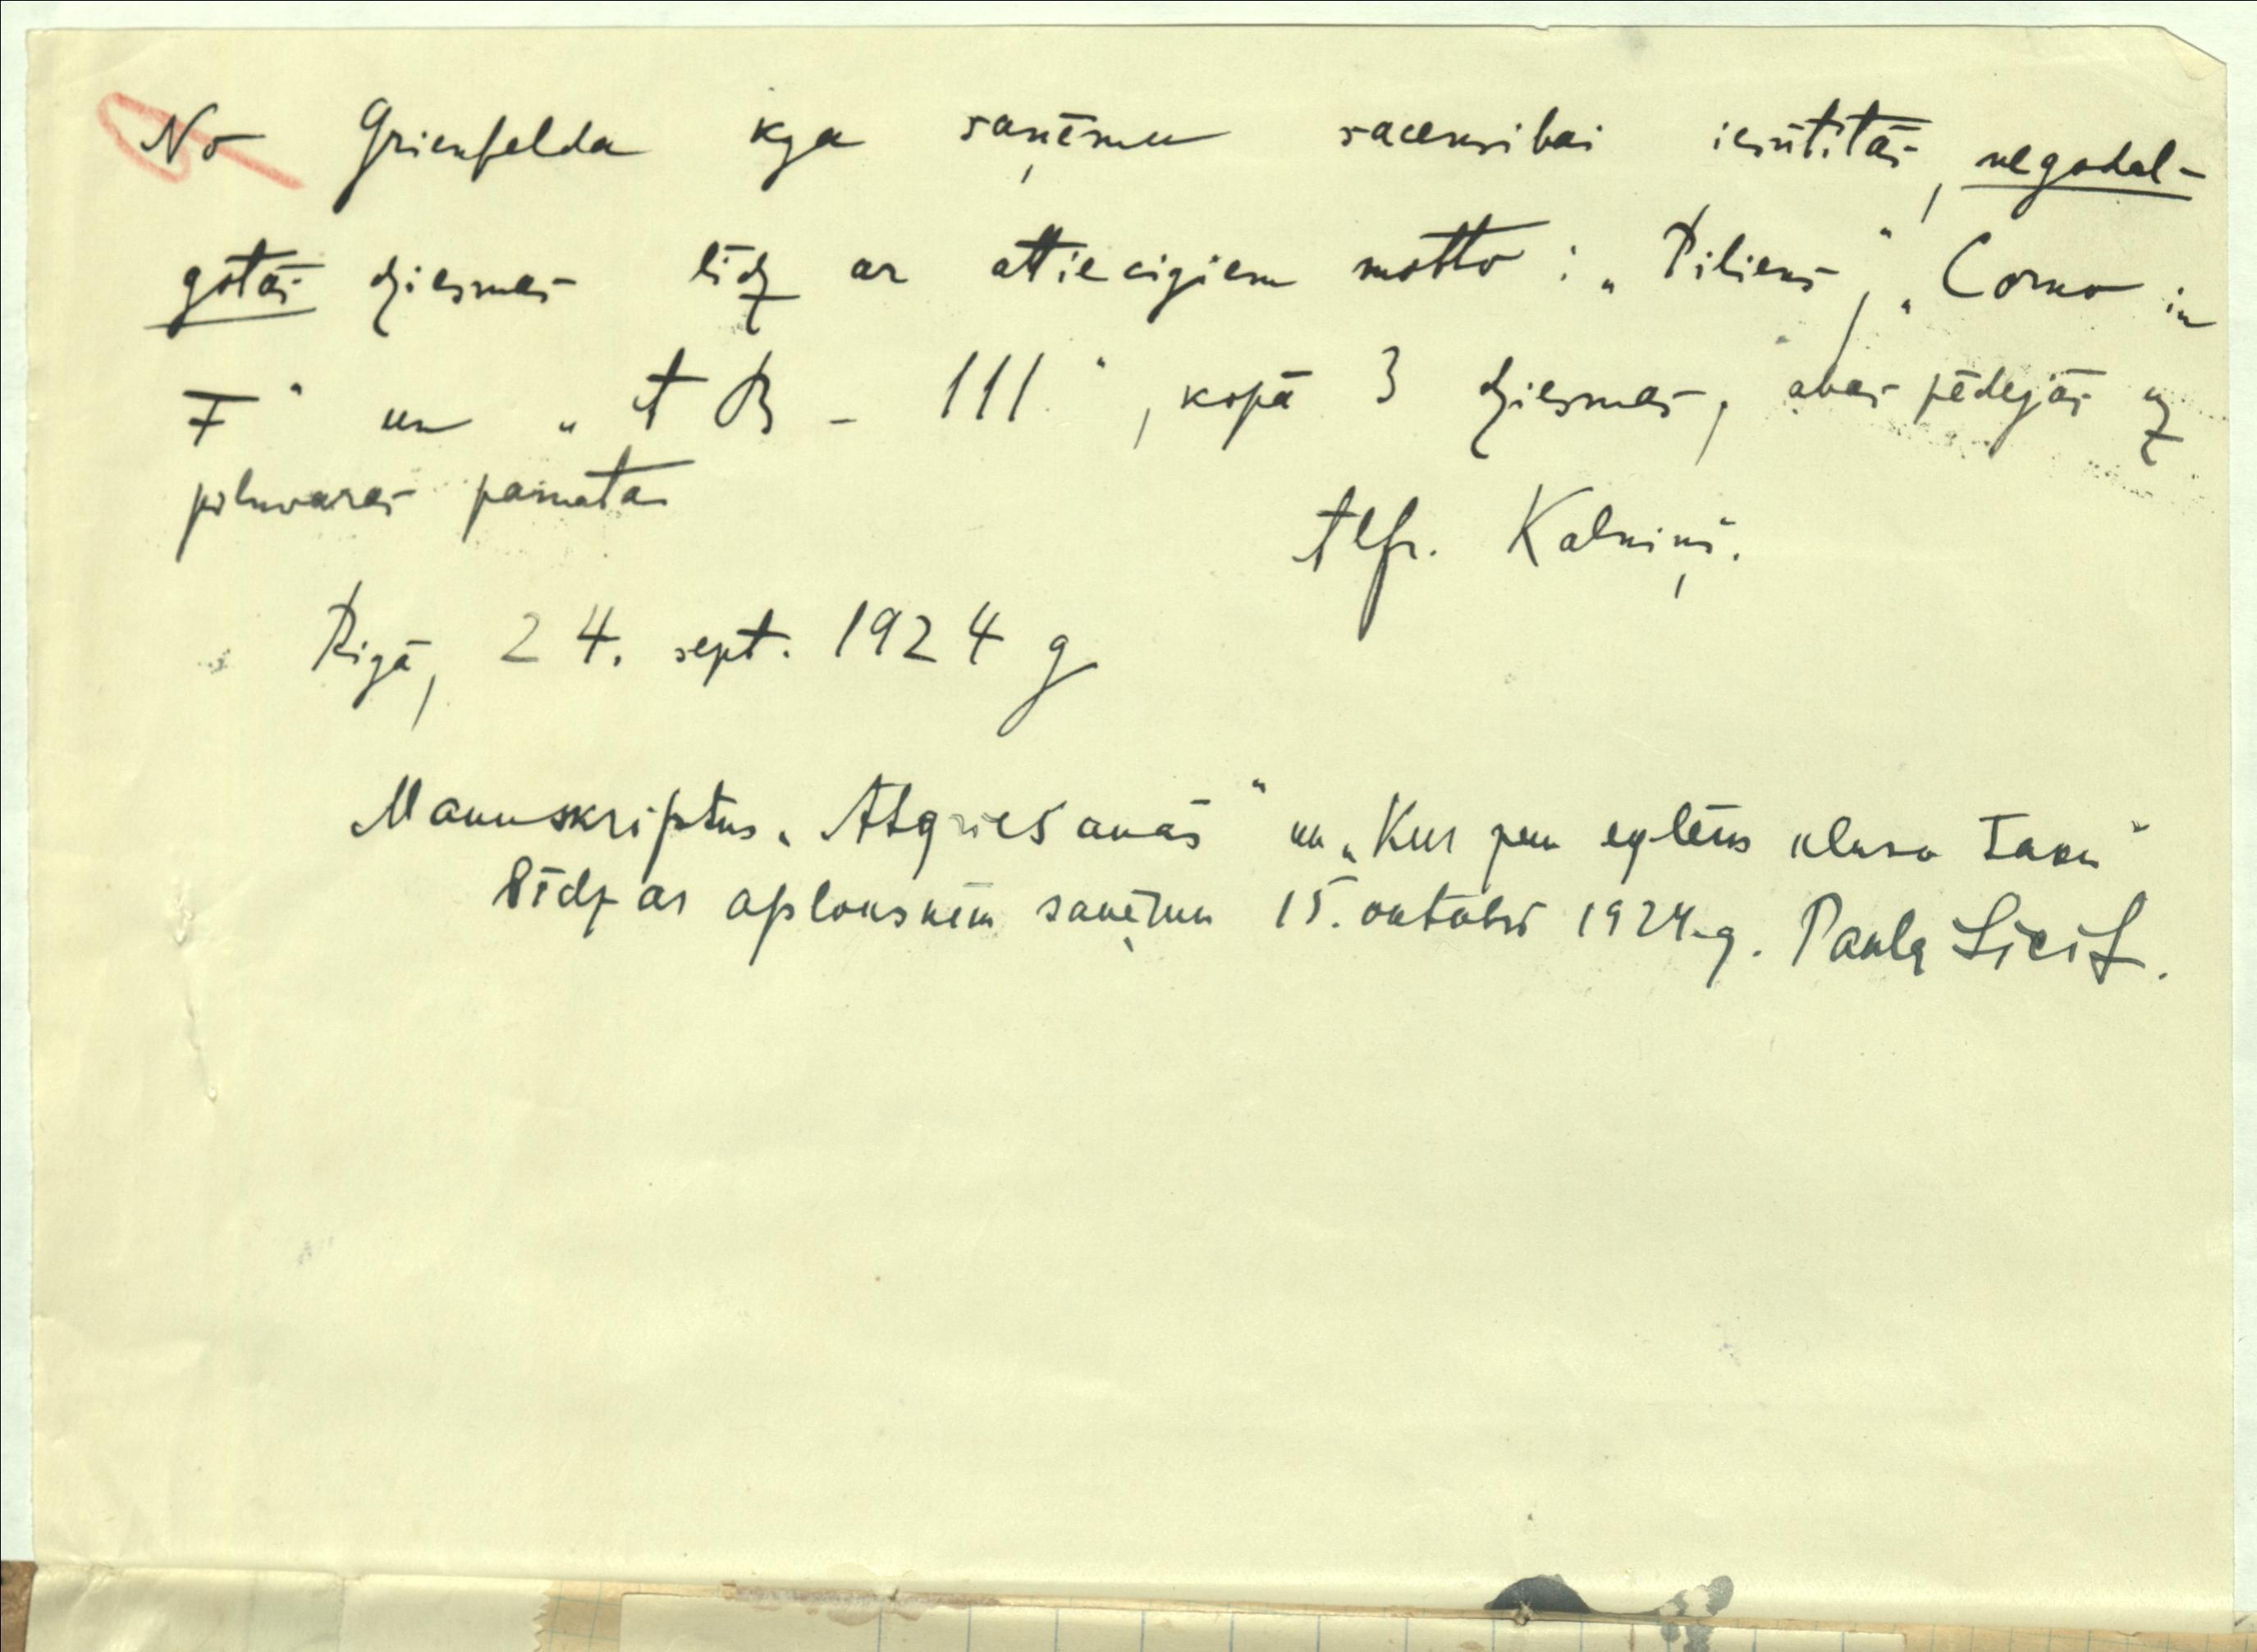 No Grienfelda kga saņēmu sacensibai iesūtitās, negodal-
gotās dziesmas līdz ar attiecigiem motto: „Piliens“, „Corno in
F“ un „A B - 111“, kopā 3 dziesmas, abas pēdejās uz
pilnvaras pamata
Alfr. Kalniņš.
Rigā, 24. sept. 1924 g
Manuskriptus „Atgriešanās“ un „Kur pār eglēm klusu"
līdz ar aploksnēm saņēmu 15. oktobrī 1924. g. Paula Līcīt.